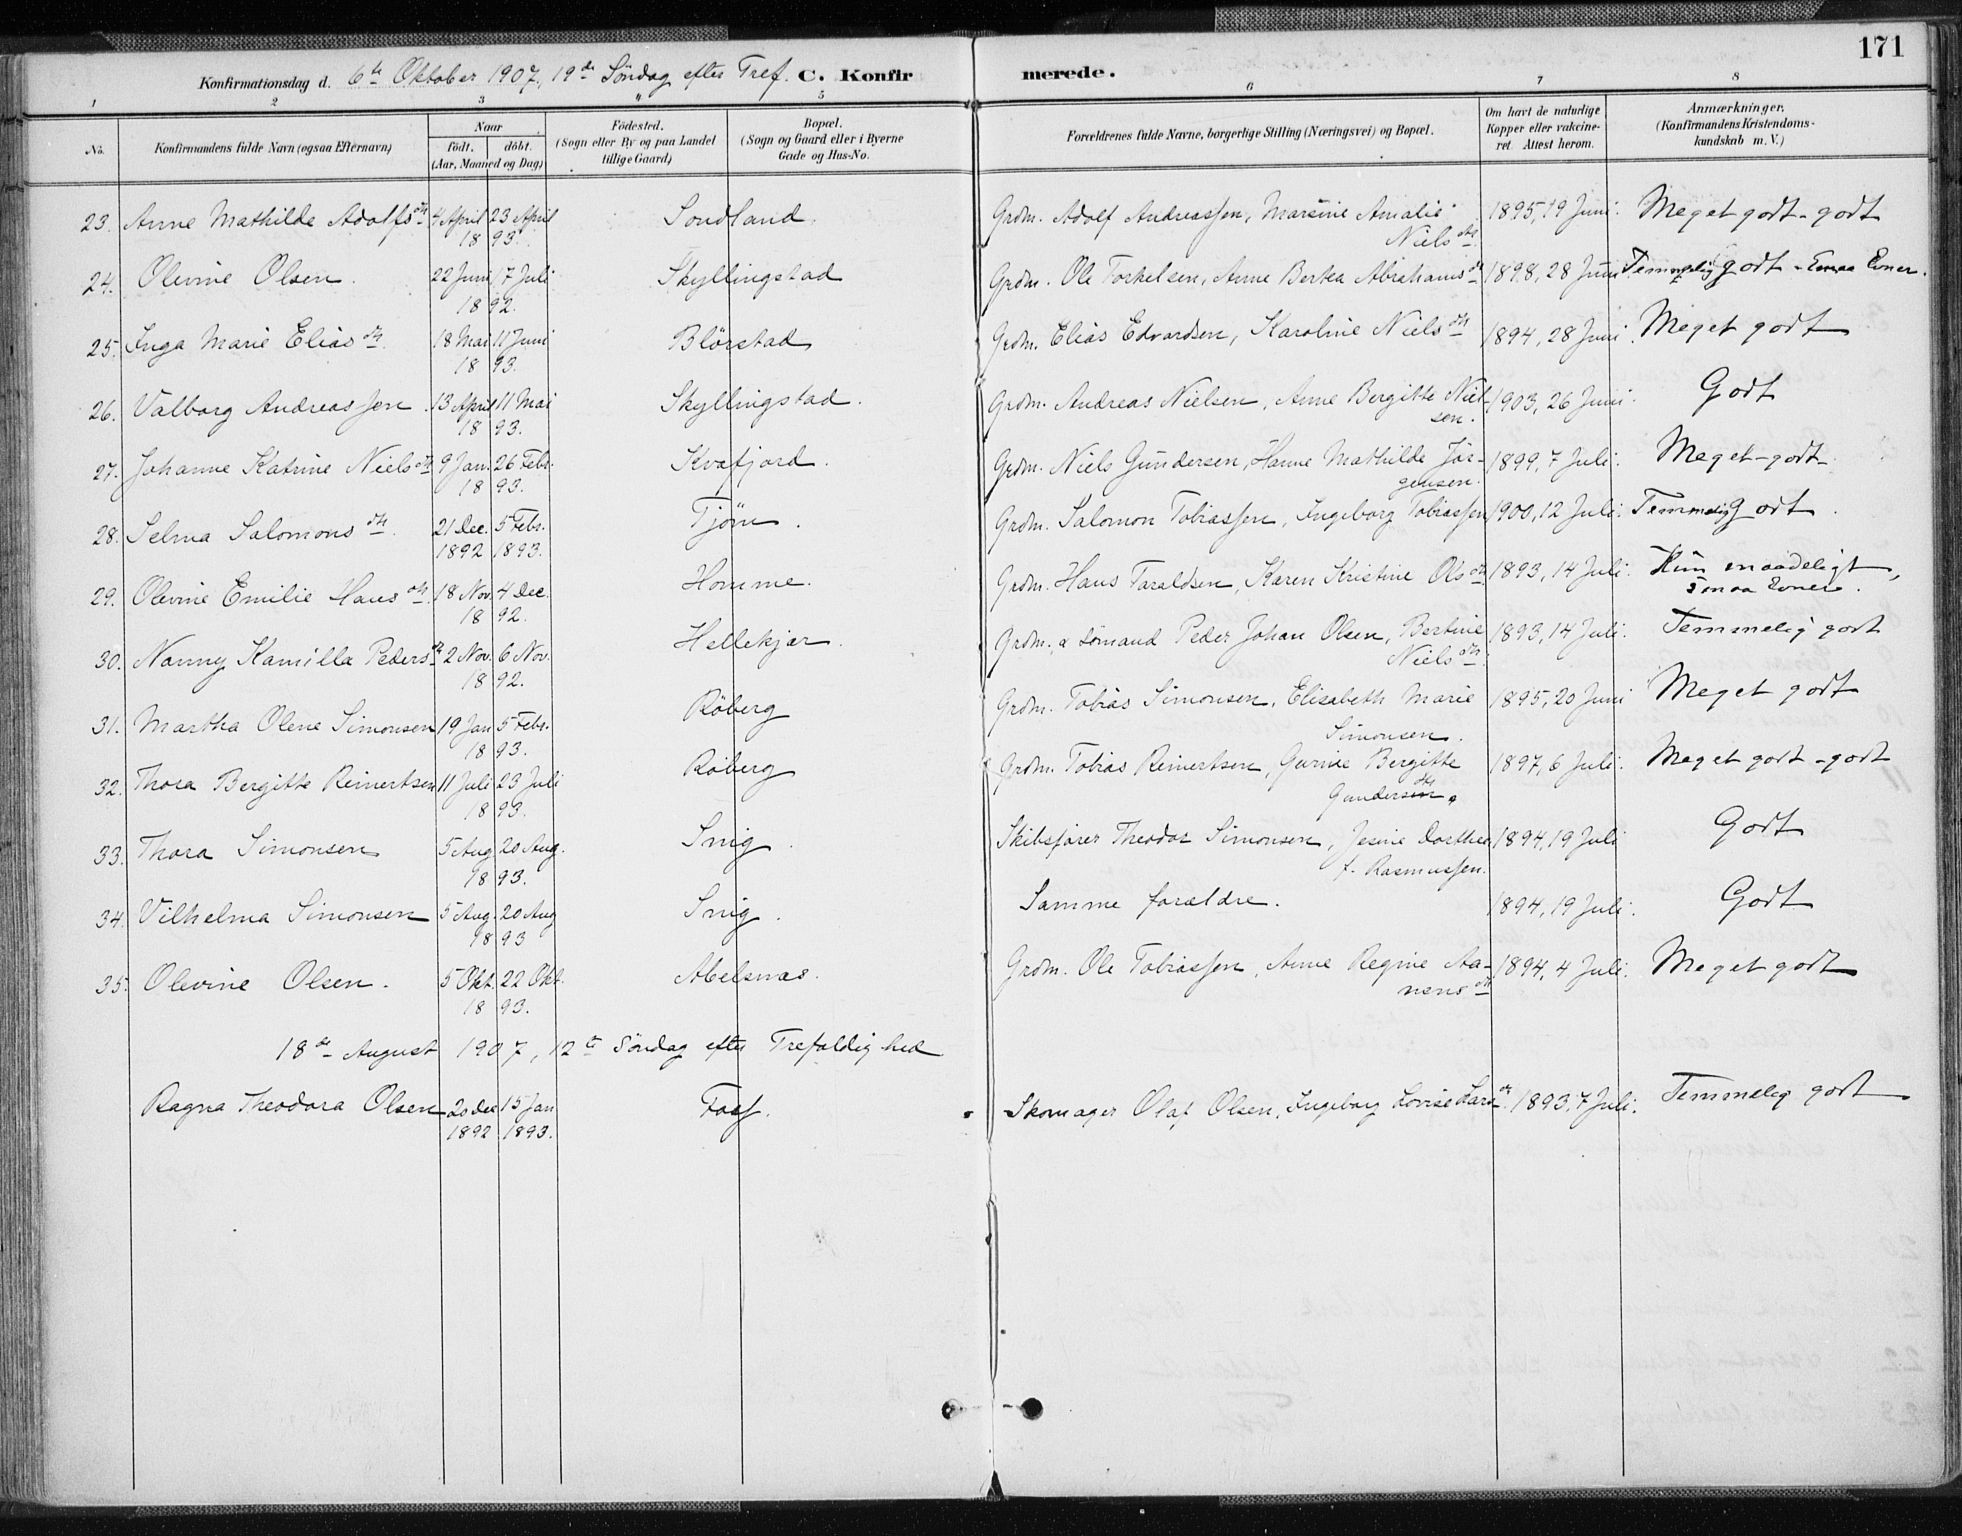 171
Konfirmationsdag d. 6te Oktober 1907, 19de Söndag efter Tref. C. Konfirmerede.
1 2 3 4 5 6 7 8
No. Konfirmandens fulde Navn (ogsaa Efternavn) Naar födt. döbt. (Aar, Maaned og Dag) Födested. (Sogn eller By og paa Landet tillige Gaard) Bopæl. (Sogn og Gaard eller i Byerne Gade og Hus-No. Forældrenes fulde Navne, borgerlige Stilling (Næringsvei) og Bopæl. Om havt de naturlige Kopper eller vakcineret. Attest herom. Anmærkninger. (Konfirmandens Kristendomskundskab m. V.)
23. Anne Mathilde Adolfsdtr 4 April 23 April 1893. Sondland. Grdm. Adolf Andreassen, Marsine Amalie Nielsdtr. 1895, 19 Juni. Meget godt - godt
24. Olevine Olsen. 22 Juni 17 Juli 1892. Skyllingstad Grdm. Ole Torkelsen, Anne Bertea Abrahamsdtr 1898, 28 Juni Temmelig godt - Smaa Evner.
25. Inga Marie Eliasdtr. 18 Mai 11 Juni 1893. Blörstad Grdm. Elias Edvardsen, Karoline Nielsdtr 1894, 28 Juni. Meget godt
26. Valborg Andreassen. 13 April 11 Mai 1893. Skyllingstad. Grdm. Andreas Nielsen, Anne Bergitte Nielsen. 1903, 26 Juni. Godt
27. Johanne Katrine Nielsdtr 9 Jan. 26 Febr. 1893. Kvafjord. Grdm. Niels Gundersen, Hanne Mathilde Jörgensen. 1899, 7 Juli. Meget-godt-
28. Selma Salomonsdtr. 21 Dec. 1892 5 Febr. 1893. Tjöm. Grdm. Salomon Tobiassen, Ingeborg Tobiassen 1900, 12 Juli. Temmelig godt.
29. Olevine Emilie Hansdtr. 18 Nov 4 Dec. 1892. Homme. Grdm. Hans Taraldsen, Karen Kristine Olsdtr 1893, 14 Juli. Kun maadeligt, Smaa Evner.
30. Nanny Kamilla Pedersdtr 2 Nov. 6 Nov. 1892. Hellekjær. Grdm. & Sömand Peder Johan Olsen, Bertine Nielsdtr. 1893, 14 Juli. Temmelig godt
31. Martha Olene Simonsen 19 Jan 5 Febr. 1893. Röberg Grdm. Tobias Simonsen, Elisabeth Marie Simonsen. 1895, 20 Juni Meget godt
32. Thora Bergitte Reinertsen 11 Juli 23 Juli 1893. Röberg Grdm. Tobias Reinertsen, Gurine Bergitte Gundersdtr. 1897, 6 Juli. Meget godt - godt
33. Thora Simonsen 5 Aug 20 Aug. 1893. Snig. Skibsförer Theodor Simonsen, Jesine Dorthea f. Rasmussen. 1894, 19 Juli Godt
34. Vilhelma Simonsen 5 Aug. 20 Aug 1893 Snig. Samme forældre. 1894, 19 Juli. Godt
35. Olevine Olsen. 5 Okt. 22 Okt. 1893. Abelsnæs. Grdm. Ole Tobiassen, Anne Regine Aanensdtr 1894, 4 Juli. Meget godt
18de August 1907, 12te Söndag efter Trefoldighed
Ragna Theodora Olsen 20 Dec 1892 15 Jan 1893. Foss. Skomager Olaf Olsen, Ingeborg Lovise Larsdtr. 1893, 7 Juli. Temmelig godt